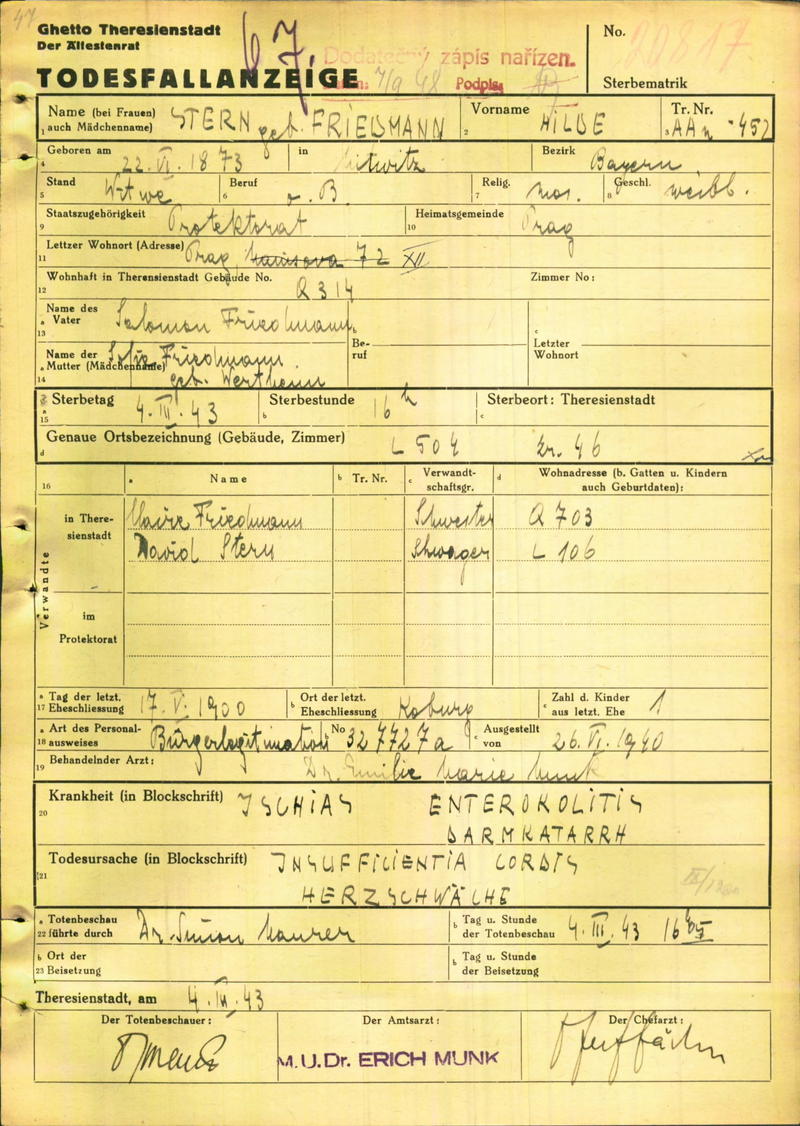 47
Ghetto Theresienstadt
Der Ältestenrat
67.
Dodatečný zápis nařízen.
7/9 48 Podpis
No. 20817
TODESFALLANZEIGE
Sterbematrik
Name (bei Frauen) STERN geb. FRIEDMANN Vorname HILDE Tr. Nr.
1 auch Mädchenname) 2 3 AAn - 452
Geboren am 22. VI. 1873 in Bezirk Bayern
4
Stand Witwe Beruf o. B Relig. mos. Geschl. weibl.
5 6 7 8
Staatszugehörigkeit Protektorat Heimatsgemeinde Prag
9 10
Lettzer Wohnort (Adresse) Prag 72 XII
11
Wohnhaft in Theresienstadt Gebäude No. Q 314 Zimmer No:
12
Name des Vater Salomon Friedmann
13
Name der Mutter (Mädchenname) Friedmann
geb. Wertheim
14
Beruf
c Letzter Wohnort
Sterbetag 4. III. 43 Sterbestunde 16 h Sterbeort: Theresienstadt
15 b c
Genaue Ortsbezeichnung (Gebäude, Zimmer) L 504 Zr. 46
d
16 a Name b Tr. Nr. c Verwandtschaftsgr. d Wohnadresse (b. Gatten u. Kindern auch Geburtdaten):
Verwandte
in Theresienstadt
Friedmann Schwester Q 703
David Stern Schwager L 106
im Protektorat
a Tag der letzt. 17 Eheschliessung 17. V. 1900 b Ort der letzt. Eheschliessung Koburg c Zahl d. Kinder aus letzt. Ehe 1
a Art des Personal- 18 ausweises Bürgerlegitimation No 327727a c Ausgestellt von 26. VI. 1940
Behandelnder Arzt: Dr. Emilie Marie Munk
19
Krankheit (in Blockschrift) ISCHIAS ENTEROKOLITIS
20 DARMKATARRH
Todesursache (in Blockschrift) INSUFFICIENTIA CORDIS
21 HERZSCHWÄCHE
a Totenbeschau 22 führte durch Dr. Simon b Tag u. Stunde der Totenbeschau 4. III. 43
b Ort der 23 Beisetzung b Tag u. Stunde der Beisetzung
Theresienstadt, am 4. III. 43
Der Totenbeschauer: Der Amtsarzt: Der Chefarzt:
M.U.Dr. ERICH MUNK